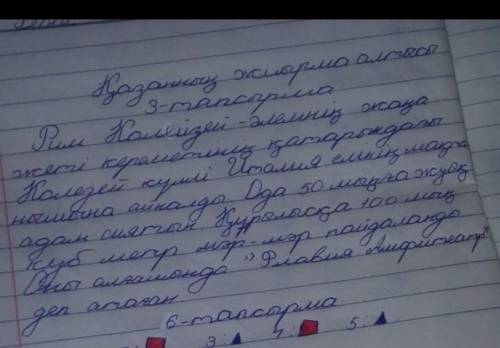 Қазанның жиырма алтысы
3-тапсырма
Рим Колейзей - әлемнің жаңа
жеті кереметінің қатарындағы
Колезей күллі Италия елінің мақта
нышына айналды. Ода 50 мыңға жуық
адам сиятын. Құрылысқа 100 мың
куб метр мәр-мәр пайдаланды
Оны алғашында "Флавия Амфитеатр"
деп атаған
6-тапсырма
3: 4: 5: